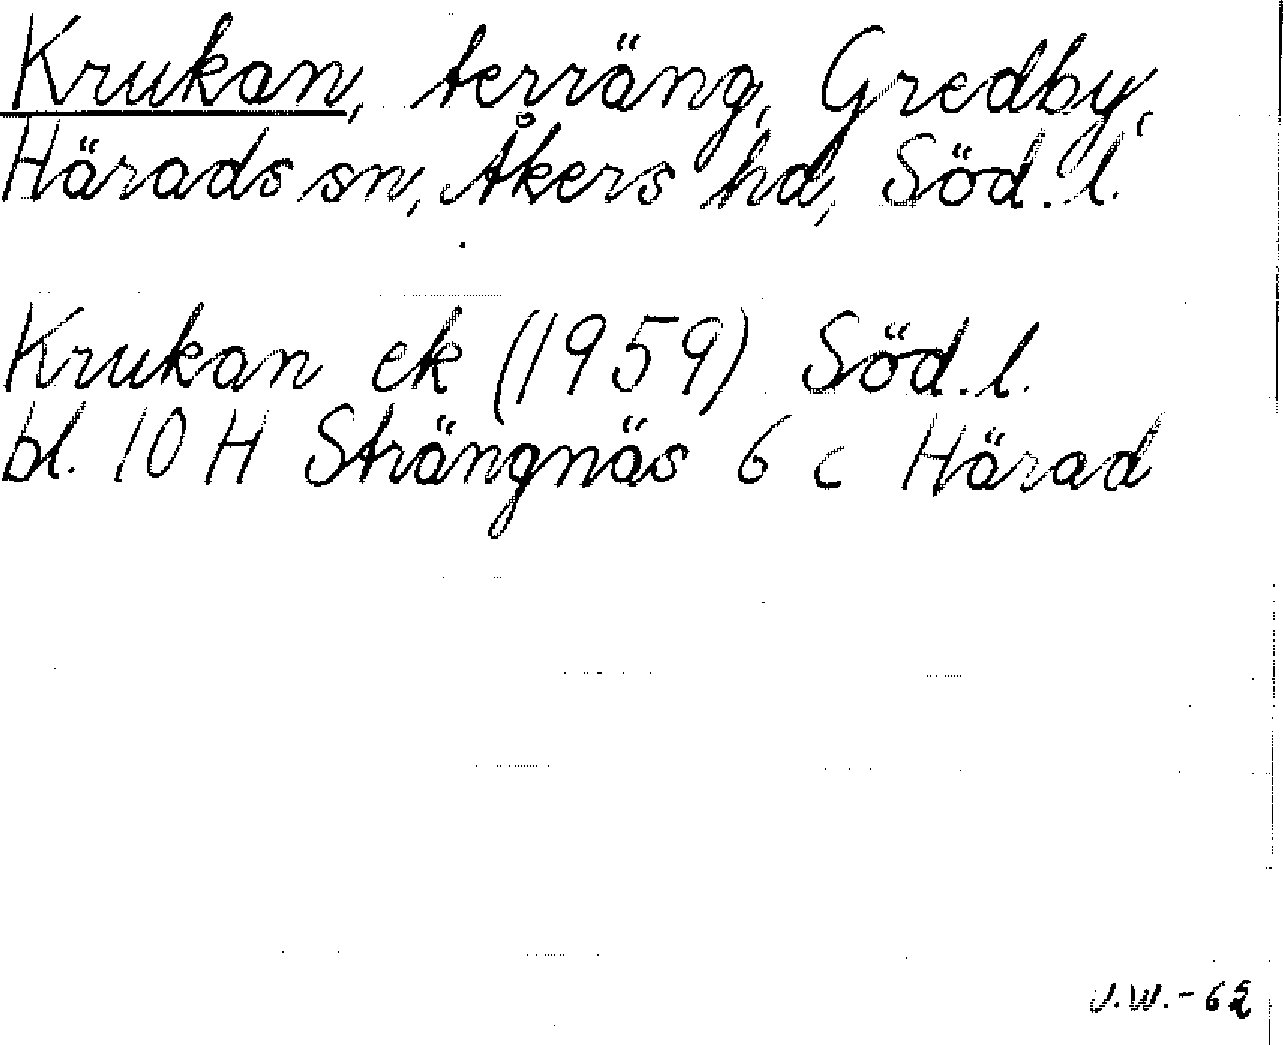 Krukan, terräng, Gredby,
Härads sn, Åkers hd, Söd. l.
Krukan ek (1959) Söd. l.
bl. 10 H Strängnäs 6 c Härad
J.W.-62